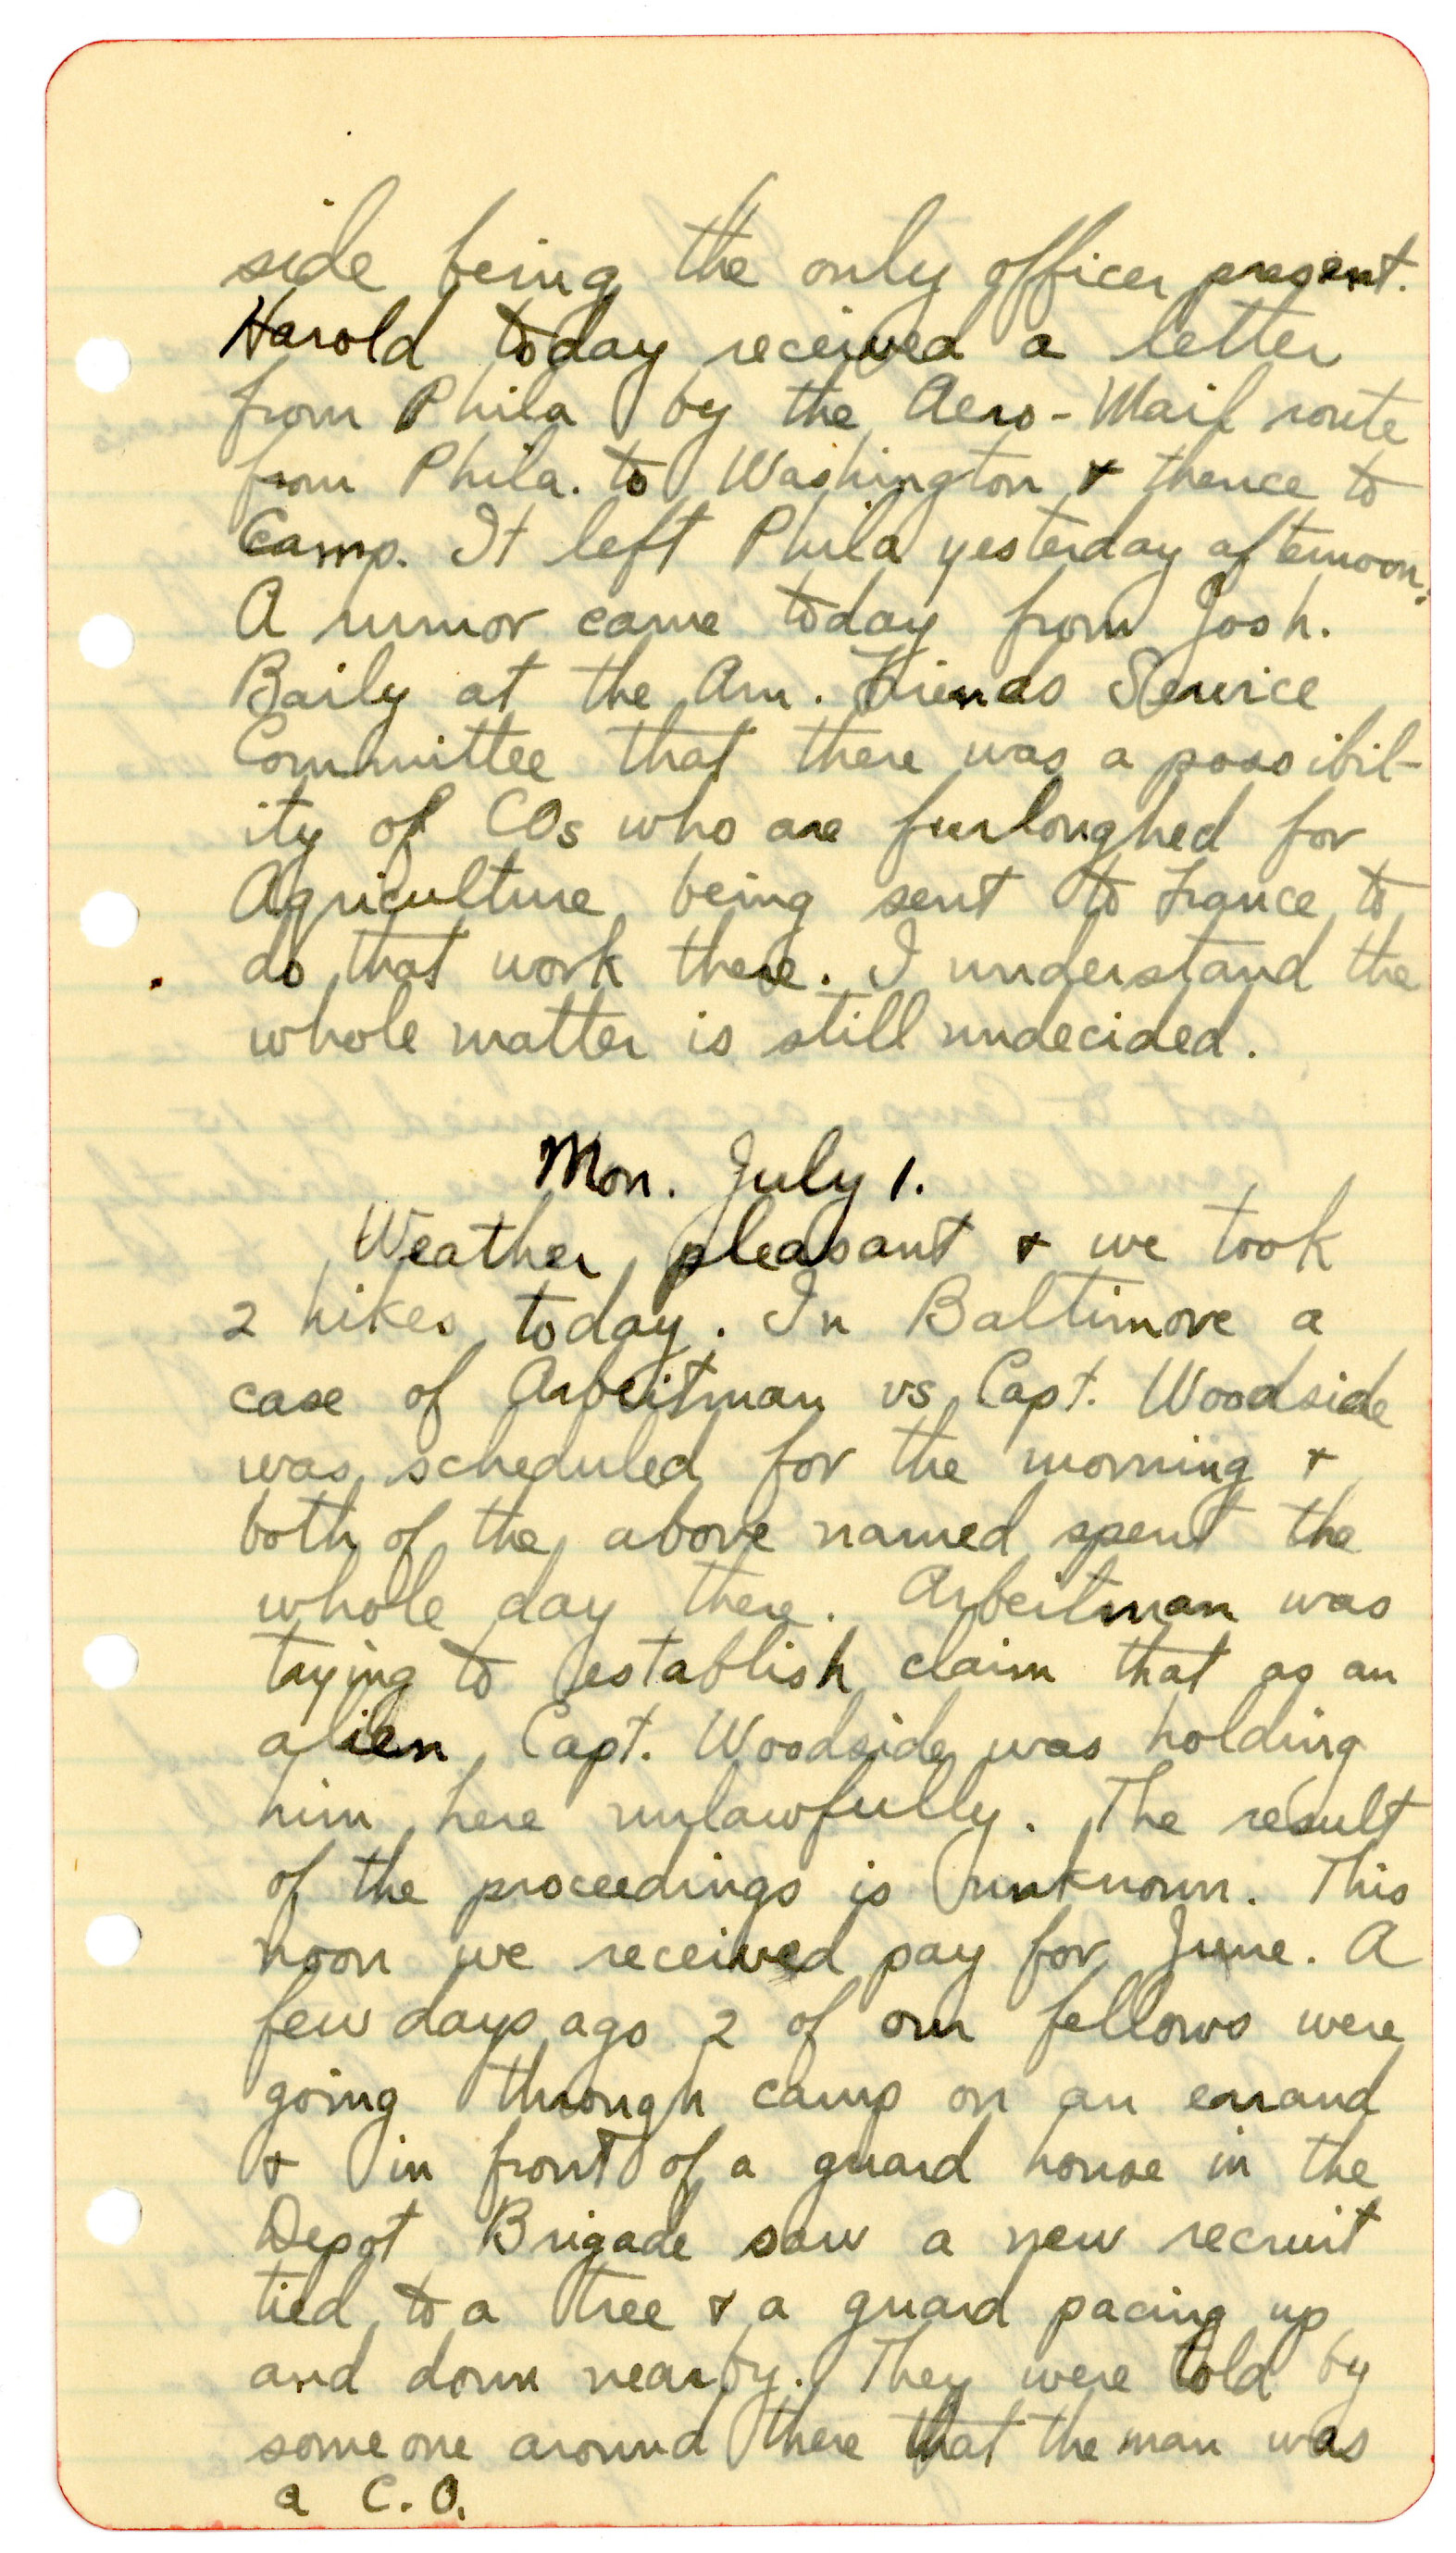 side being the only officer present.
Harold today received a letter
from Phila by the Aero-Mail route
from Phila. to Washington & thence to
Camp. It left Phila yesterday afternoon.
A rumor came today from Josh.
Baily at the Am. Friends Service
Committee that there was a possibil-
ity of COs who are furloughed for
Agriculture being sent to France to
do that work there. I understand the
whole matter is still undecided.
Mon. July 1.
Weather pleasant & we took
2 hikes today. In Baltimore a
case of Arbeitman vs Capt. Woodside
was scheduled for the morning &
both of the above named spent the
whole day there. Arbeitman was
trying to establish claim that as an
alien, Capt. Woodside was holding
him here unlawfully. The result
of the proceedings is unknown. This
noon we received pay for June. A
few days ago 2 of our fellows were
going through camp on an errand
& in front of a guard house in the
Depot Brigade saw a new recruit
tied to a tree & a guard pacing up
and down nearby. They were told by
someone around there that the man was
a C.O.